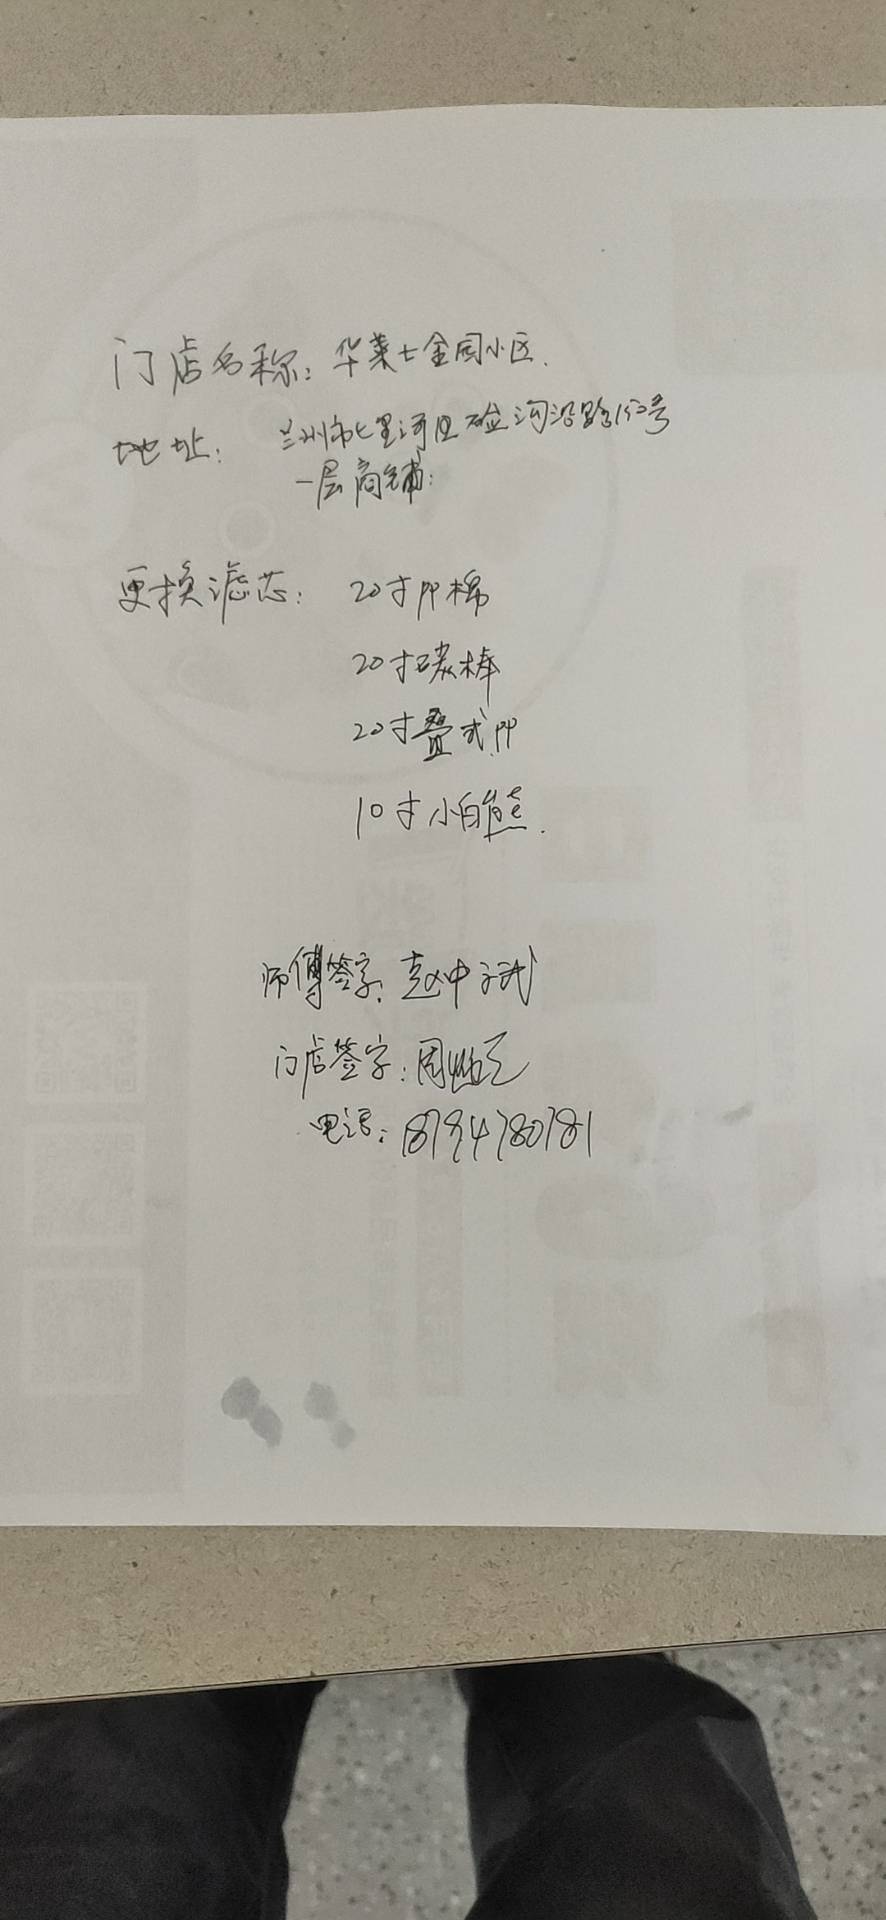 门店名称：华莱士金园小区.
地址： 兰州市七里河区硷沟沿路150号
一层商铺：
更换滤芯： 20寸PP棉
20寸碳棒
20寸叠式PP
10寸小白熊.
师傅签字：赵中斌
门店签字：周
电话：18794780781